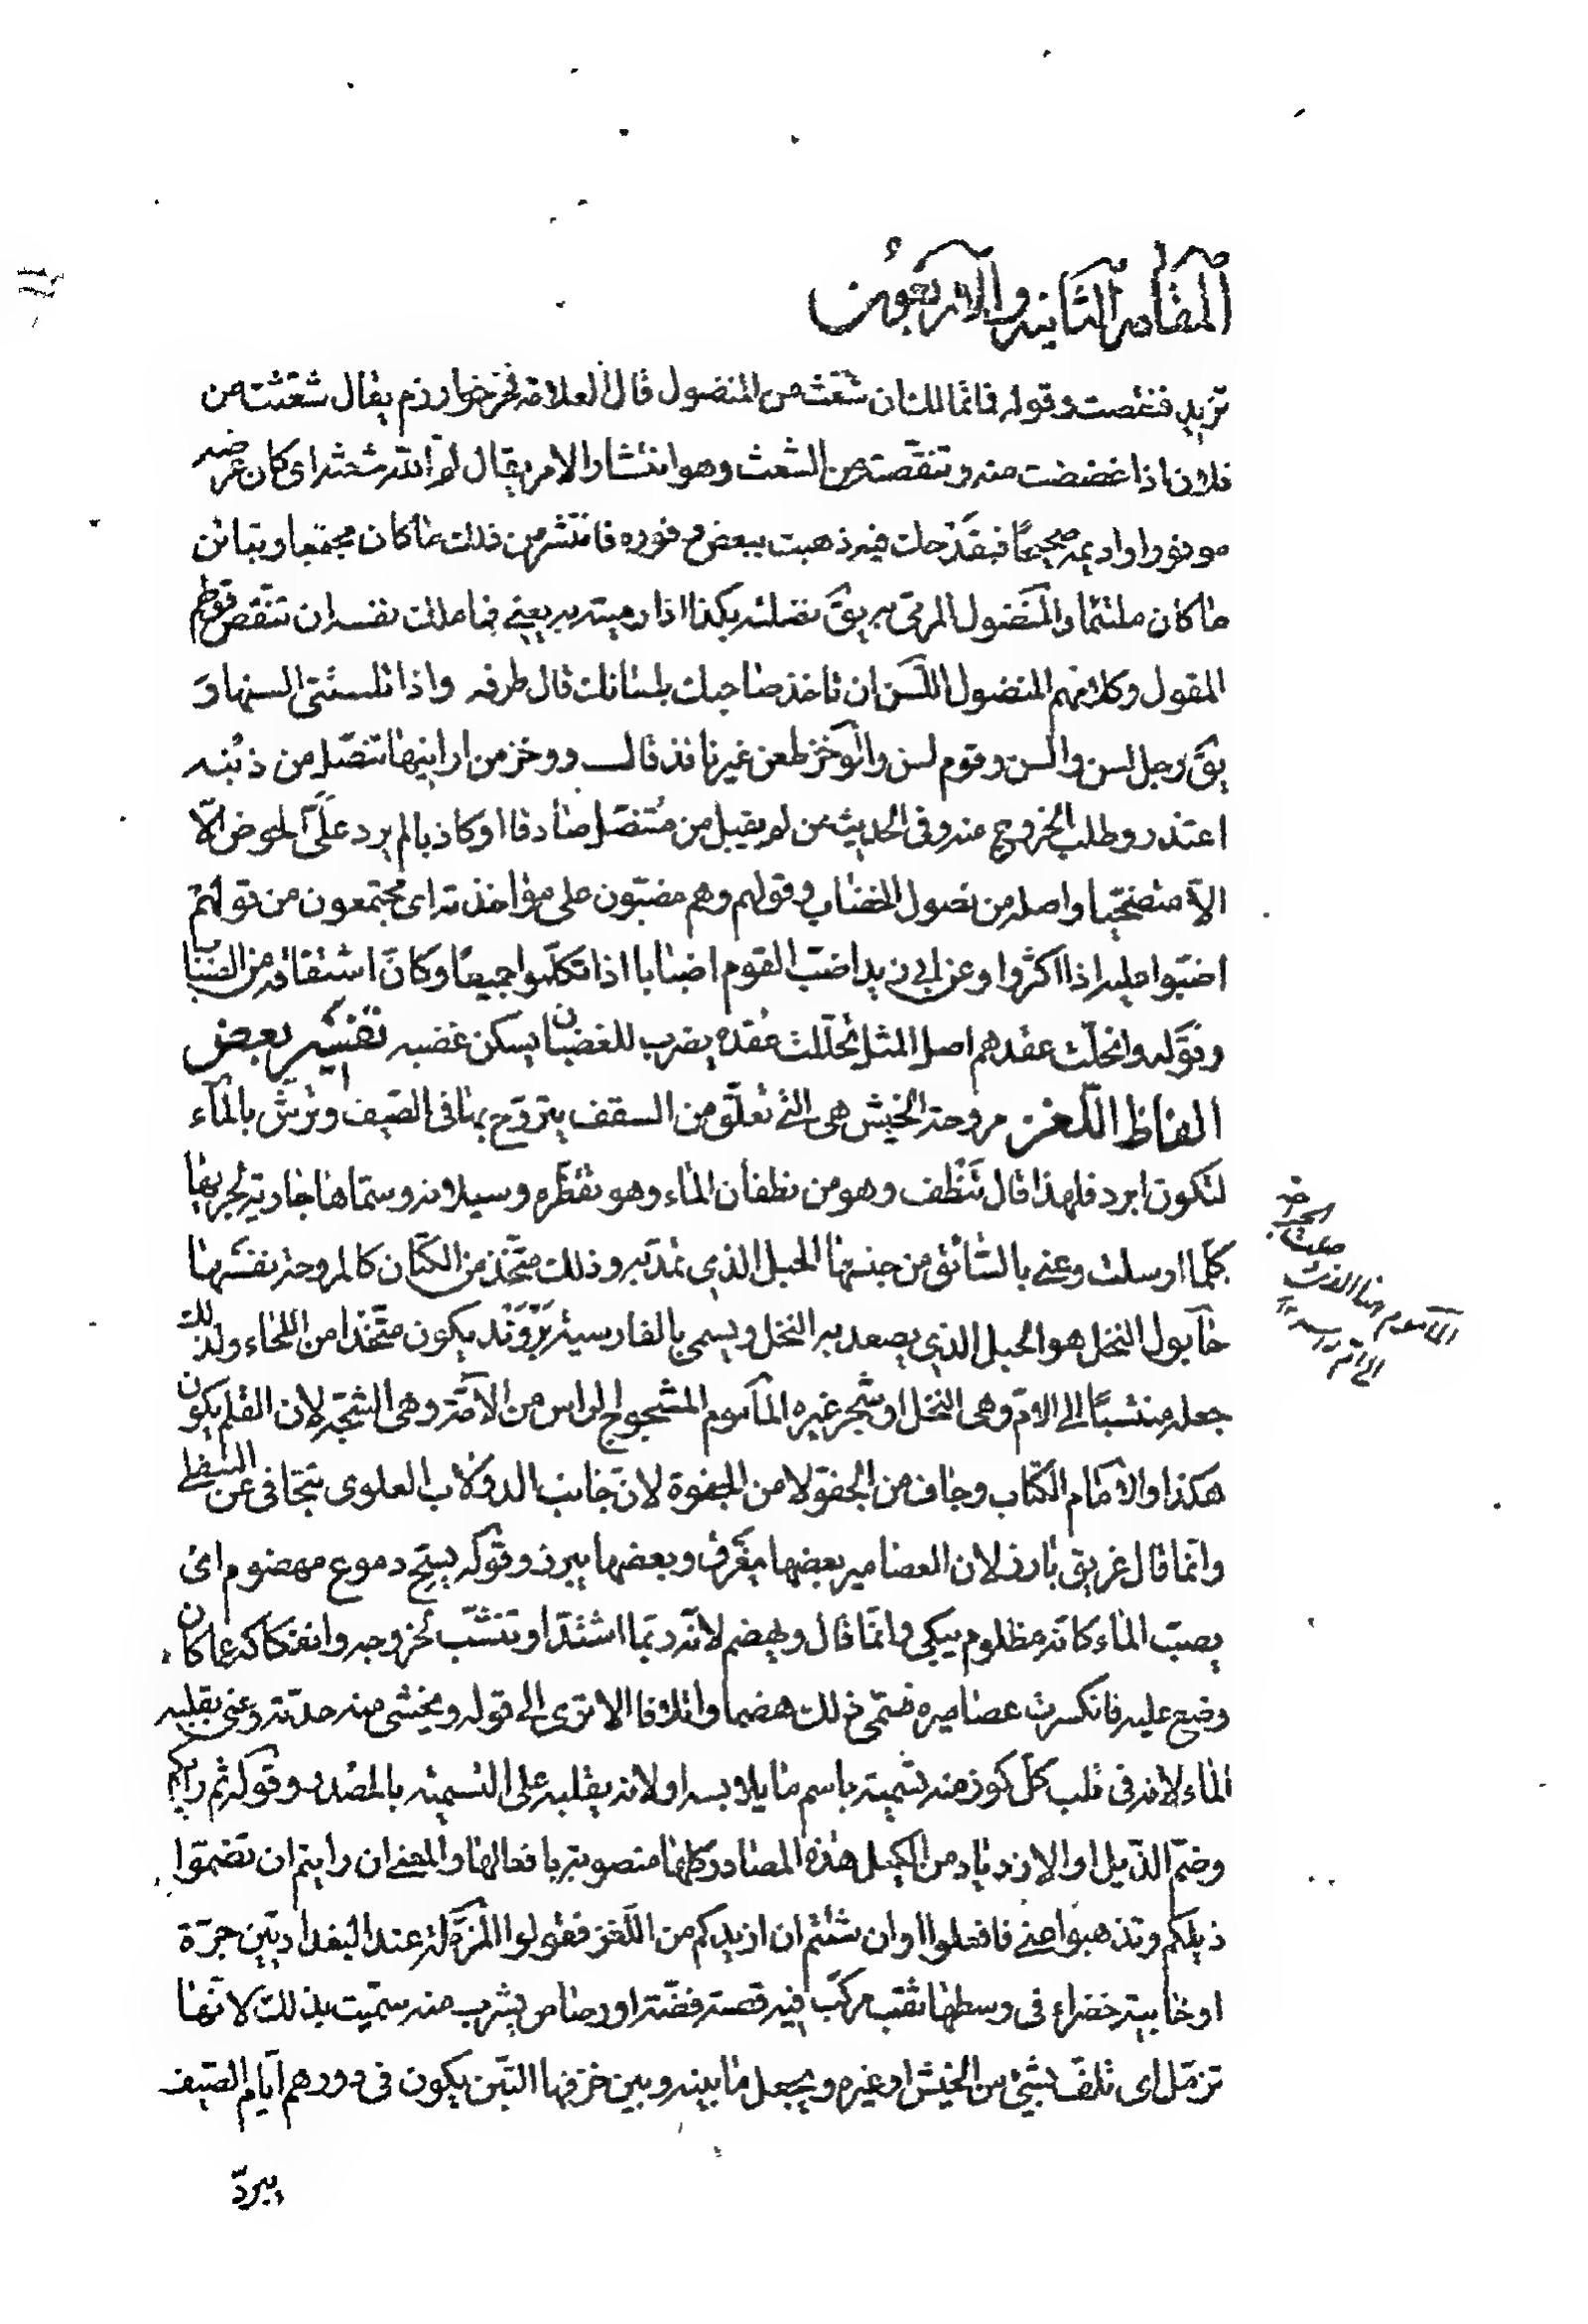 المقامة الثانية والاربعون
تزيد فنغصت وقوله فانما لك ان شعث من المنضول قال العلامة فخر خوارزم يقال شعثت من
فلان اذا غضضت منه وتنقصته من الشعث وهو انتشار الامر يقال لم الله شعثه اى كان عرضه
موفورا واديمه صحيحًا فبقدحك فيه ذهبت ببعض وفوره فانتشر من ذلك ما كان مجتمعا وتباين
ما كان ملتئما والمنضول المرمى به يق نضلته بكذا اذا رميته به يعنى فما ملك نفسه ان تنقص قولهم
المقول وكلامهم المنضول اللسن ان تاخذ صاحبك بلسانك قال طرفه واذا تلسننى السنها و
يق رجل لسن والسن وقوم لسن والوخز طعن غير نافذ قال ووخز من ارانيها تنصّل من ذنبه
اعتذر وطلب الخروج منه وفى الحديث من لم يقبل من متنصّل صادقا او كاذبا لم يرد علىّ الحوض الّا
الّا متضيّحا واصله من نصول الخضاب وقولهم وهم مضبّون على مؤاخذته اى مجتمعون من قولهم
اضبّوا عليه اذا اكثروا وعن ابى زيد اضبّ القوم اضبابا اذا تكلّموا جميعًا وكانّ اشتقاقه من الضباب
وقوله وانحلّت عقدهم اصل المثل تحلّلت عقده يضرب للغضبان يسكن غضبه تفسير بعض
الفاظ اللغز مروحة الخيش هى التى تعلّق من السقف يتروّح بها فى الصيف وترشّ بالماء
لتكون ابرد فلهذا قال تنطف وهو من نطفان الماء وهو تقطّره وسيلانه وسمّاها جارية لجريها
كلّما ارسلت وعنى بالسّائق من جنسها الحبل الذى تمدّ به وذلك متّخذ من الكتّان كالمروحة نفسها
حابول النخل هو الحبل الذى يصعد به النخل ويسمى بالفارسية بَرْوَنْد يكون متّخذا من اللحاء ولذلك
جعله منتسبًا الى الامّ وهى النخل او شجر غيره المأموم المشجوج الراس من الآمّة وهى الشجّة لان القلم يكون
هكذا والامام الكتاب وجاف من الجفو لا من الجفوة لانّ جانب الدولاب العلوى يتجافى عن السفلى
وانّما قال غريق بارز لان العصامير بعضها يغرق وبعضها يبرز وقوله يسحّ دموع مهضوم اى
يصبّ الماء كانّه مظلوم يبكى وانّما قال ويهضم لانّه ربّما اشتدّ او تنشّب لخروجه وانفكاكه عمّا كان
وضع عليه فانكسرت عصاميره فسمّى ذلك هضما واتلافا الا ترى الى قوله ويخشى منه حدّته وعنى بقلبه
الماء لانه فى قلب كلّ كوز منه تسمية باسم ما يلابسه او لانه يقلبه على التسمية بالمصدر وقوله ثم رايكم
وضمّ الذّيل او الازدياد من الكيل هذه المصادر كلها منصوبة بافعالها والمعنى ان رايتم ان تضمّوا
ذيلكم وتذهبوا عنى فافعلوا وان شئتم ان ازيدكم من اللّغز فقولوا المزمّلة عند البغداديّين جرّة
او خابية خضراء فى وسطها ثقب مركّب فيه قصبة فضّة او رصاص يشرب منه سمّيت بذلك لانّها
تزمّل اى تلفّ بشئ من الخيش او غيره ويجعل ما بينه وبين خزفها التبن يكون فى دورهم ايّام الصيف
يبرد